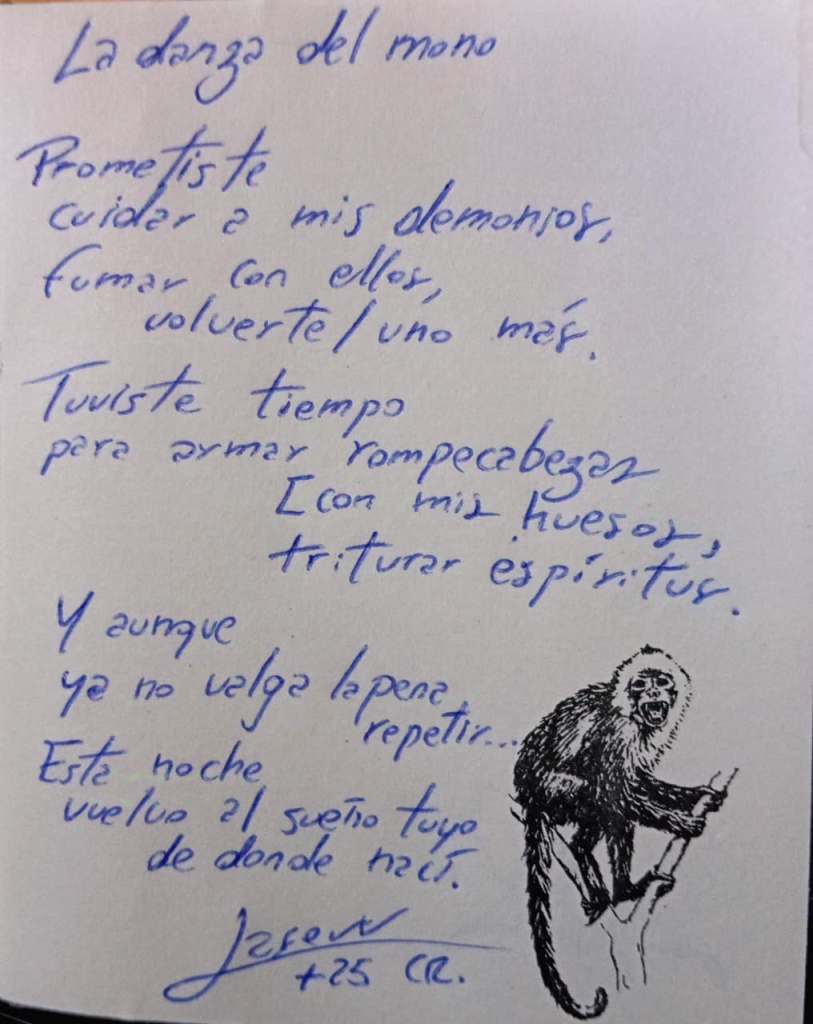 La danza del mono
Prometiste
cuidar a mis demonios,
fumar con ellos,
volverte/uno más.
Tuviste tiempo
para armar rompecabezas
[con mis huesos,
triturar espíritus.
Y aunque
ya no valga la pena
repetir...
Esta noche
vuelvo al sueño tuyo
de donde nací.
+25 CR.